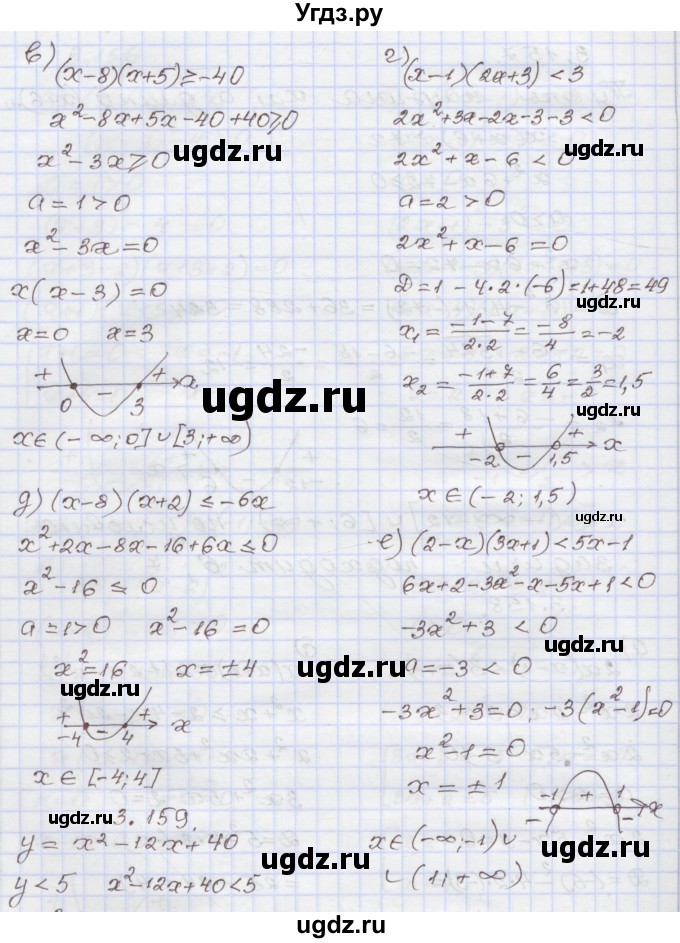 Угдз.ру
в)
(x-8)(x+5)≥-40
x²-8x+5x-40+40≥0
x²-3x≥0
ugdz.ru
a=1>0
x²-3x=0
x(x-3)=0
x=0 x=3
+ - + x
0 3
ugdz.ru
x∈(-∞;0]∪[3;+∞)
г)
(x-1)(2x+3)<3
2x²+3x-2x-3-3<0
2x²+x-6<0
ugdz.ru
a=2>0
2x²+x-6=0
D=1-4·2·(-6)=1+48=49
ugdz.ru
x₁=(-1-7)/(2·2)=-8/4=-2
x₂=(-1+7)/(2·2)=6/4=3/2=1,5
ugdz.ru
+ - + x
-2 1,5
x∈(-2;1,5)
д) (x-8)(x+2)≤-6x
x²+2x-8x-16+6x≤0
x²-16≤0
ugdz.ru
a=1>0 x²-16=0
x²=16 x=±4
ugdz.ru
+ - + x
-4 4
x∈[-4;4]
е) (2-x)(3x+1)<5x-1
6x+2-3x²-x-5x+1<0
ugdz.ru
-3x²+3<0
a=-3<0
-3x²+3=0; -3(x²-1)=0
ugdz.ru
x²-1=0
x=±1
-1 + 1 x
- -
x∈(-∞;-1)∪
∪(1;+∞)
ugdz.ru
ugdz.ru
3.159.
y=x²-12x+40
y<5 x²-12x+40<5
ugdz.ru
ugdz.ru